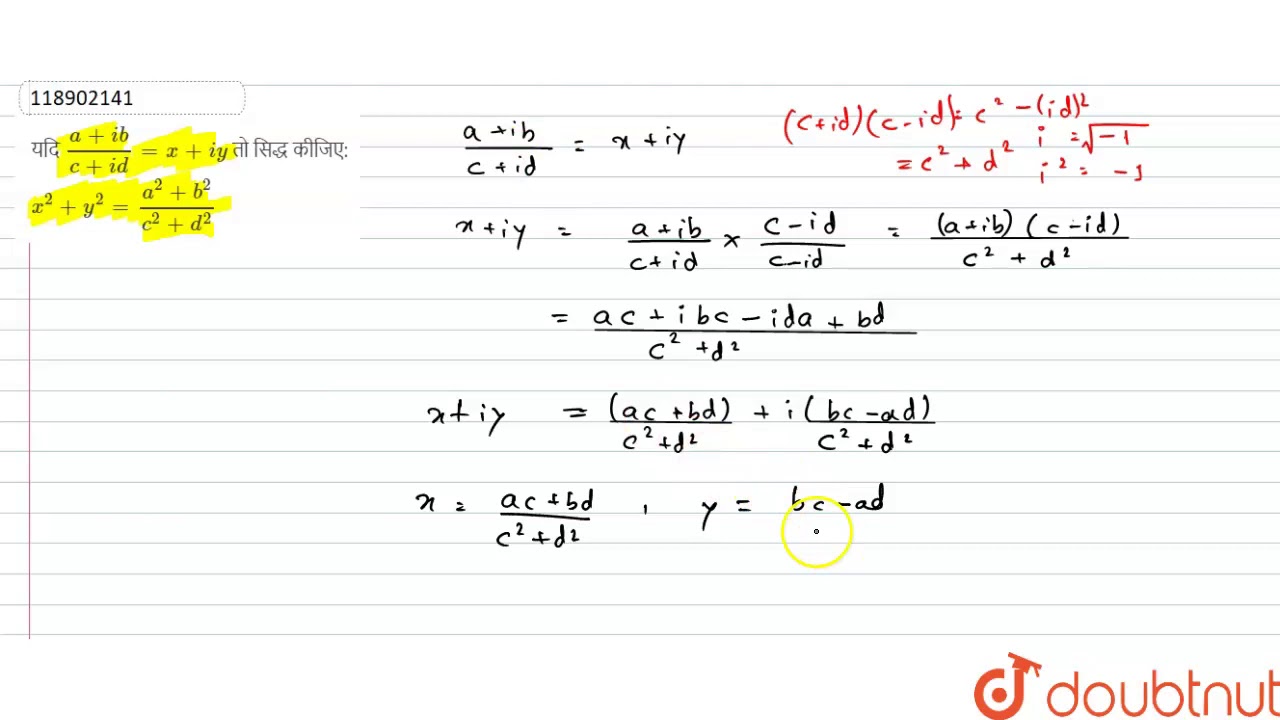 118902141
यदि (a + ib)/(c + id) = x + iy तो सिद्ध कीजिए:
x² + y² = (a² + b²)/(c² + d²)
(a+ib)/(c+id) = x+iy
(c+id)(c-id) = c² - (id)²
= c² + d²
i = √-1
i² = -1
x+iy = (a+ib)/(c+id) × (c-id)/(c-id) = (a+ib)(c-id)/(c² + d²)
= (ac + ibc - ida + bd)/(c² + d²)
x+iy = (ac+bd)/(c²+d²) + i(bc-ad)/(c²+d²)
x = (ac+bd)/(c²+d²) , y = bc-ad
doubtnut